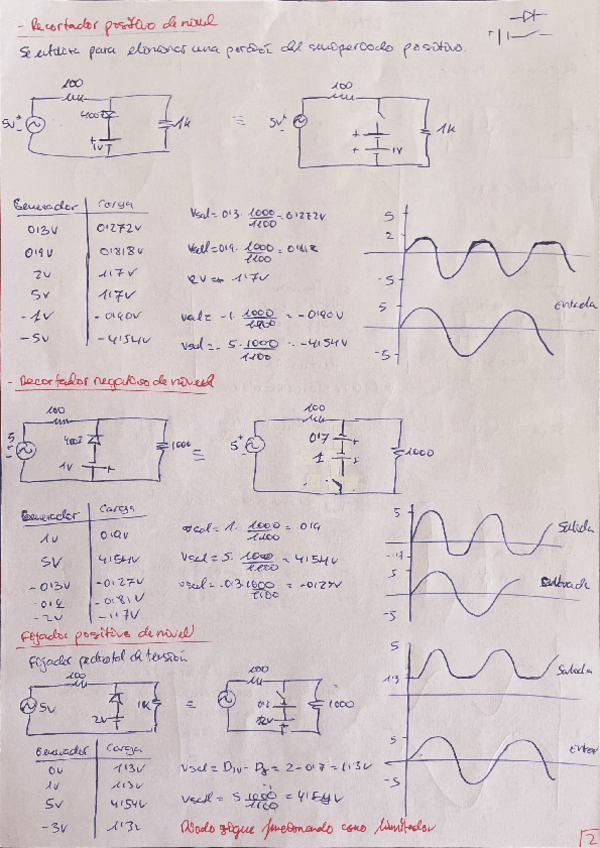 - Recortador positivo de nivel
Se utiliza para eliminar una porción del semiperiodo positivo.
100
5V
+
-
400Ω
1V
1K
≡
100
5V
+
-
1V
1K
Generador Carga
0'3V 0'272V
0'9V 0'818V
2V 1'7V
5V 1'7V
-1V -0'90V
-5V -4'54V
Vsal = 0'3 · 1000/1100 = 0'272V
Vsal = 0'9 · 1000/1100 = 0'818
2V → 1'7V
Vsal = -1 · 1000/1100 = -0'90V
Vsal = -5 · 1000/1100 = -4'54V
5
2
-5
5
Entrada
-5
- Recortador negativo de nivel
100
5
1V
+
1000
≡
100
5
+
0'7
+
1
+
1000
Generador Carga
1V 0'9V
5V 4'54V
-0'3V -0'27V
-0'81V
-2V -1'7V
Vsal = 1 · 1000/1100 = 0'9
Vsal = 5 · 1000/1100 = 4'54V
Vsal = -0'3 · 1000/1100 = -0'27V
5
Salida
-1'7
5
Entrada
-5
Fijador positivo de nivel
Fijador pedestal de tensión
100
5V
2V
1K
≡
100
1000
Generador Carga
0V 1'3V
1V 1'3V
5V 4'54V
-3V 1'3V
= 2 - 0'7 = 1'3V
Vsal = 5 · 1000/1100 = 4'54V
Diodo sigue funcionando como limitador
5
1'3
Salida
5
-5
2